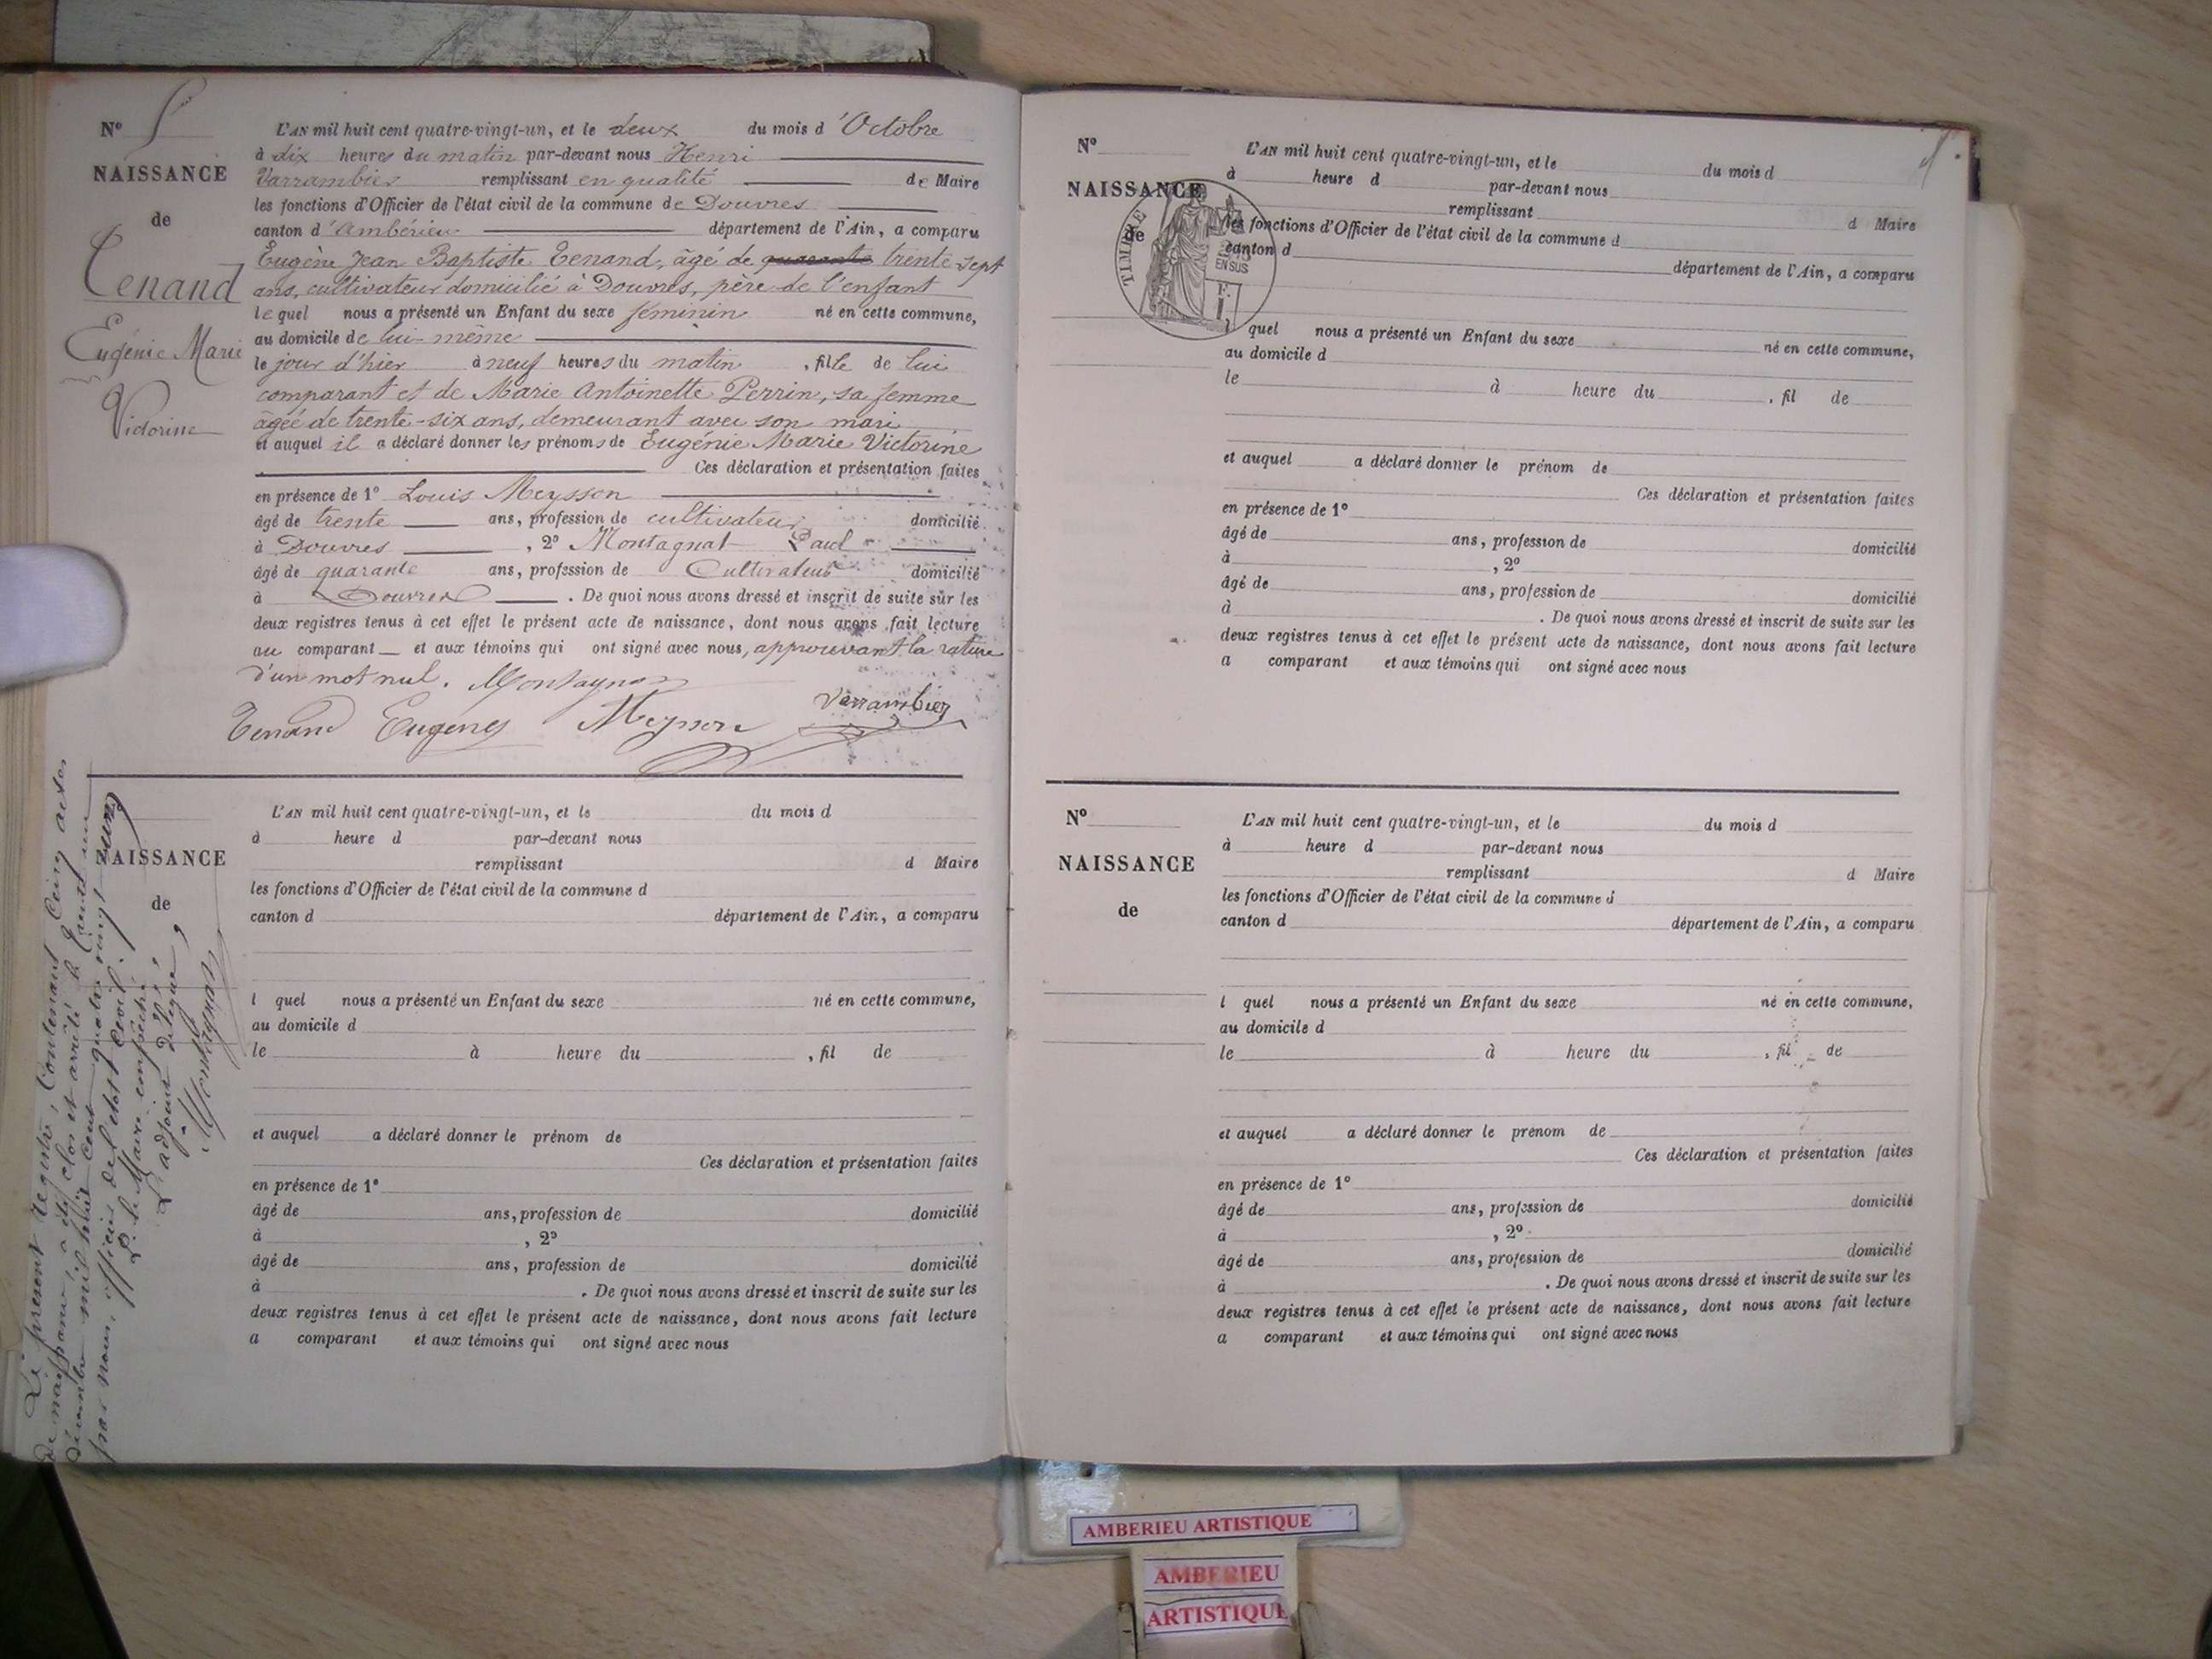 N° 5
NAISSANCE
de
Tenand
Eugénie Marie
Victorine
L'AN mil huit cent quatre-vingt-un, et le deux du mois d'Octobre
à dix heures du matin par-devant nous Henri
Varrambier remplissant en qualité de Maire
les fonctions d'Officier de l'état civil de la commune de Douvres
canton d'Ambérieu département de l'Ain, a comparu
Eugène Jean Baptiste Tenand, âgé de quarante trente-sept
ans, cultivateur domicilié à Douvres, père de l'enfant
lequel nous a présenté un Enfant du sexe féminin né en cette commune,
au domicile de lui-même
le jour d'hier à neuf heures du matin, fille de lui
comparant et de Marie Antoinette Perrin, sa femme
âgée de trente-six ans, demeurant avec son mari
et auquel il a déclaré donner les prénoms de Eugénie Marie Victorine
Ces déclaration et présentation faites
en présence de 1° Louis Meysson
âgé de trente ans, profession de cultivateur domicilié
à Douvres, 2° Montagnat Paul
âgé de quarante ans, profession de Cultivateur domicilié
à Douvres. De quoi nous avons dressé et inscrit de suite sur les
deux registres tenus à cet effet le présent acte de naissance, dont nous avons fait lecture
au comparant et aux témoins qui ont signé avec nous, approuvant la rature
d'un mot nul. Montagnat
Varrambier
Tenand Eugène Meysson
NAISSANCE
de
L'AN mil huit cent quatre-vingt-un, et le du mois d
à heure d par-devant nous
remplissant d Maire
les fonctions d'Officier de l'état civil de la commune d
canton d département de l'Ain, a comparu
l quel nous a présenté un Enfant du sexe né en cette commune,
au domicile d
le à heure du , fil de
et auquel a déclaré donner le prénom de
Ces déclaration et présentation faites
en présence de 1°
âgé de ans, profession de domicilié
à , 2°
âgé de ans, profession de domicilié
à . De quoi nous avons dressé et inscrit de suite sur les
deux registres tenus à cet effet le présent acte de naissance, dont nous avons fait lecture
a comparant et aux témoins qui ont signé avec nous
Le présent registre, Contenant Cinq actes
de naissance, a été clos et arrêté le trente un
décembre mil huit cent quatre vingt-un
par nous, officier de l'état civil.
P. le Maire empêché,
L'adjoint délégué,
Montagnat
N°
NAISSANCE
de
TIMBRE
EN SUS
L'AN mil huit cent quatre-vingt-un, et le du mois d
à heure d par-devant nous
remplissant d Maire
les fonctions d'Officier de l'état civil de la commune d
canton d département de l'Ain, a comparu
l quel nous a présenté un Enfant du sexe né en cette commune,
au domicile d
le à heure du , fil de
et auquel a déclaré donner le prénom de
Ces déclaration et présentation faites
en présence de 1°
âgé de ans, profession de domicilié
à , 2°
âgé de ans, profession de domicilié
à . De quoi nous avons dressé et inscrit de suite sur les
deux registres tenus à cet effet le présent acte de naissance, dont nous avons fait lecture
a comparant et aux témoins qui ont signé avec nous
N°
NAISSANCE
de
L'AN mil huit cent quatre-vingt-un, et le du mois d
à heure d par-devant nous
remplissant d Maire
les fonctions d'Officier de l'état civil de la commune d
canton d département de l'Ain, a comparu
l quel nous a présenté un Enfant du sexe né en cette commune,
au domicile d
le à heure du , fil de
et auquel a déclaré donner le prénom de
Ces déclaration et présentation faites
en présence de 1°
âgé de ans, profession de domicilié
à , 2°
âgé de ans, profession de domicilié
à . De quoi nous avons dressé et inscrit de suite sur les
deux registres tenus à cet effet le présent acte de naissance, dont nous avons fait lecture
a comparant et aux témoins qui ont signé avec nous
AMBERIEU ARTISTIQUE
AMBERIEU
ARTISTIQUE